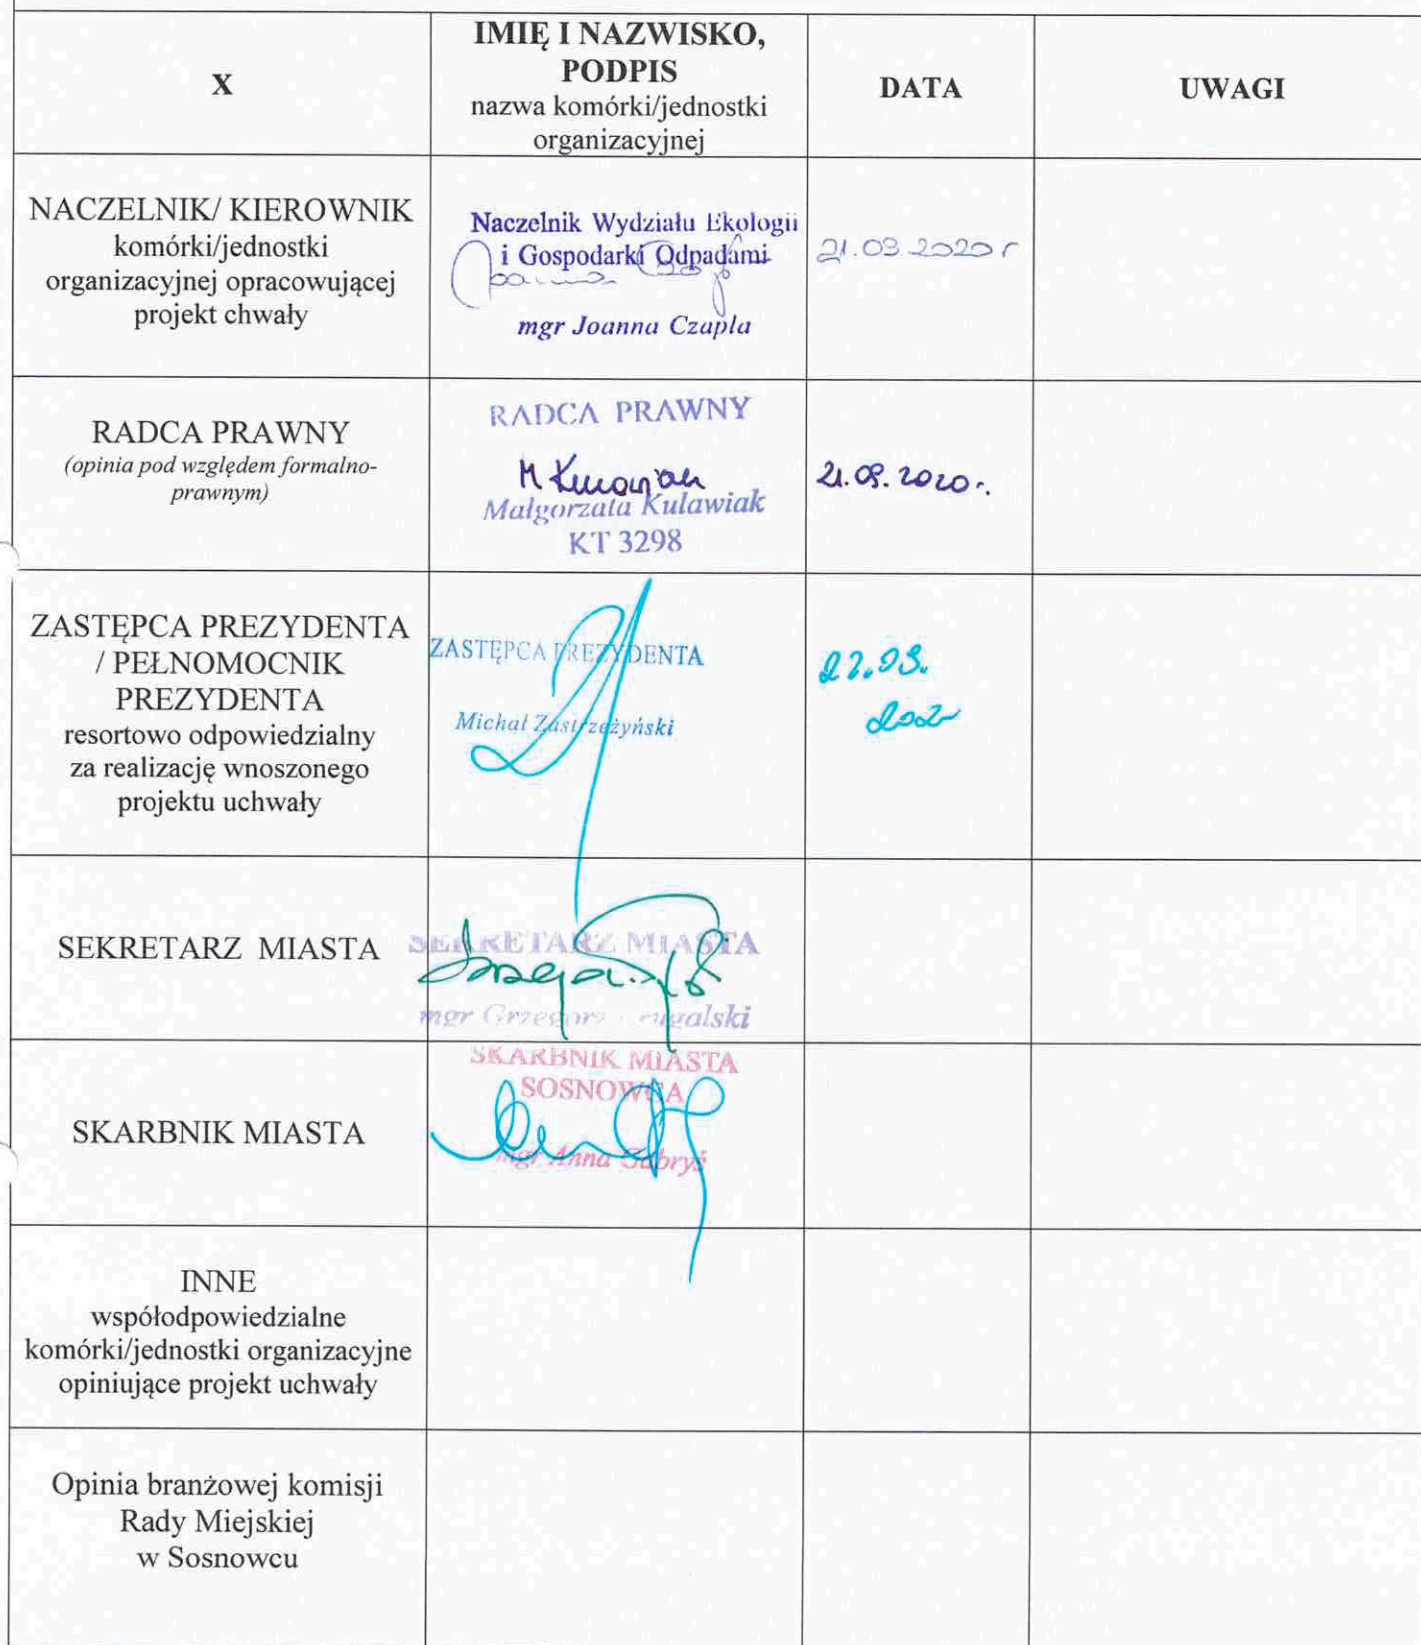 X
IMIĘ I NAZWISKO,
PODPIS
nazwa komórki/jednostki
organizacyjnej
DATA
UWAGI
NACZELNIK/ KIEROWNIK
komórki/jednostki
organizacyjnej opracowującej
projekt chwały
Naczelnik Wydziału Ekologii
i Gospodarki Odpadami
mgr Joanna Czapla
21.09.2020 r
RADCA PRAWNY
(opinia pod względem formalno-
prawnym)
RADCA PRAWNY
Małgorzata Kulawiak
KT 3298
21.09.2020r.
ZASTĘPCA PREZYDENTA
/ PEŁNOMOCNIK
PREZYDENTA
resortowo odpowiedzialny
za realizację wnoszonego
projektu uchwały
ZASTĘPCA PREZYDENTA
Michał Zastrzeżyński
22.09.
SEKRETARZ MIASTA
SEKRETARZ MIASTA
mgr Grzegorz
SKARBNIK MIASTA
SKARBNIK MIASTA
SOSNOWCA
mgr Anna Gabryś
INNE
współodpowiedzialne
komórki/jednostki organizacyjne
opiniujące projekt uchwały
Opinia branżowej komisji
Rady Miejskiej
w Sosnowcu